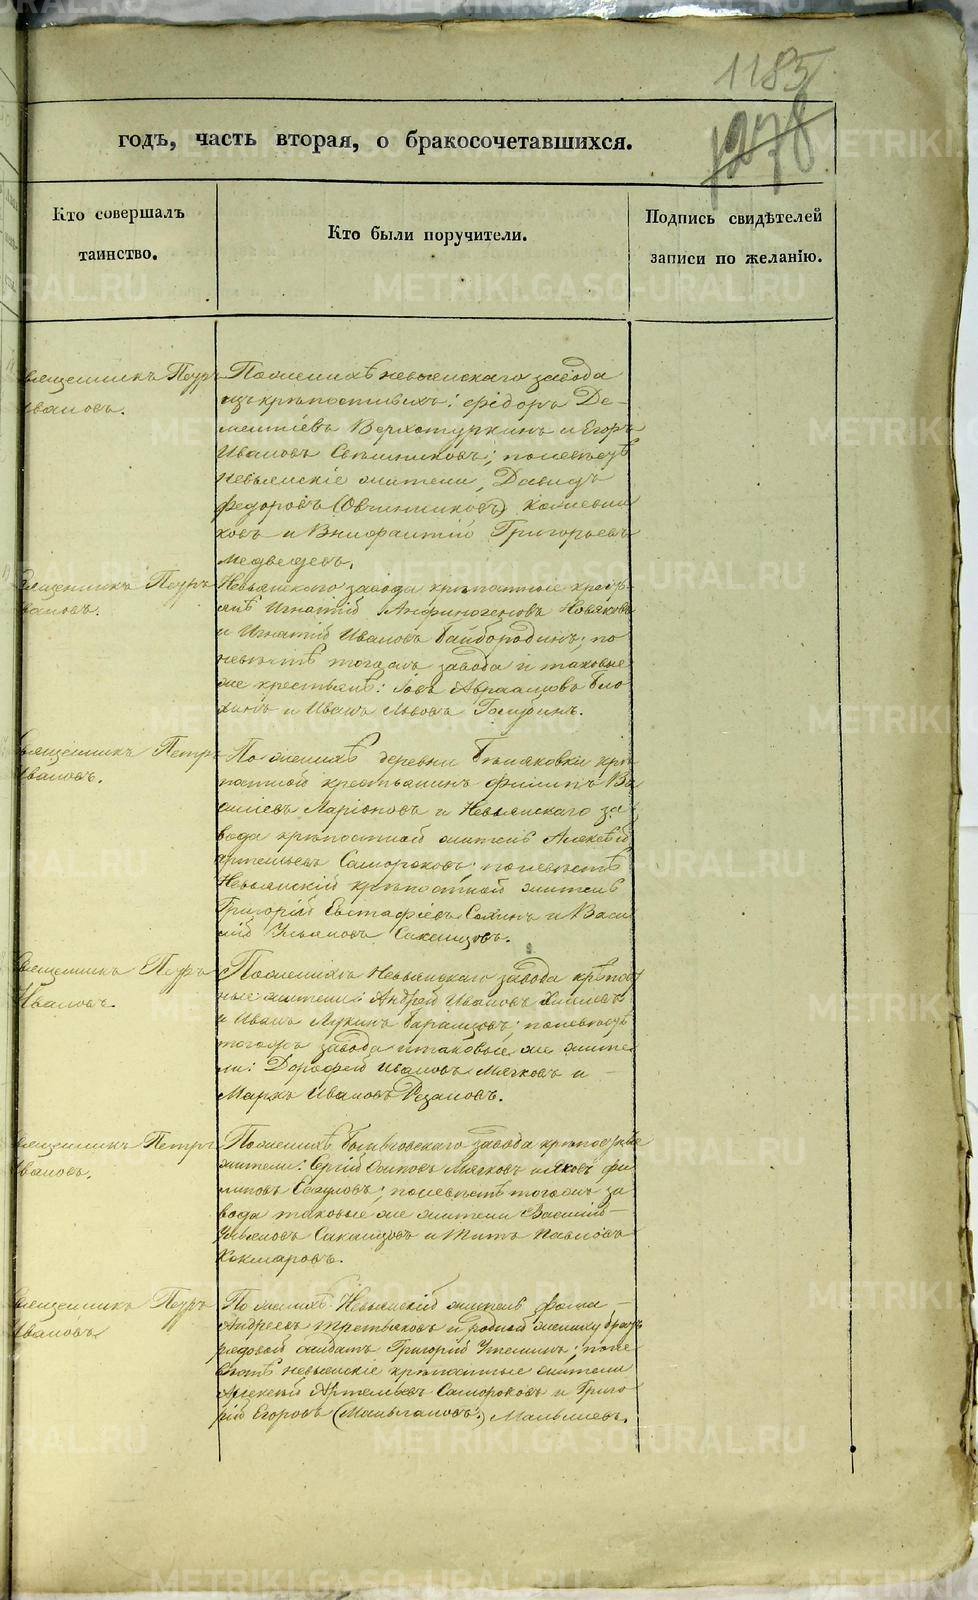 1185
1278
годъ, часть вторая, о бракосочетавшихся.
Кто совершалъ
таинство.
Кто были поручители.
Подпись свидѣтелей
записи по желанію.
священникъ Петръ
Ивановъ.
По женихѣ невьянскаго завода
изъ крѣпостныхъ: Ѳедоръ Де-
ментіевъ Верхотуркинъ и Егоръ
Ивановъ; по невѣстѣ
Невьянскіе жители, Давидъ
Федоровъ (Овчинниковъ)
и Внифантій Григорьевъ
Медведевъ.
Священникъ Петръ
Ивановъ.
Невьянского завода крѣпостные крестья-
нѣ Игнатій Анфиногеновъ
и Игнатій Ивановъ Байбородинъ; по
невѣстѣ тогожъ завода и таковые
же крестьянѣ: Іовъ Авраамовъ Бло-
хинъ и Иванъ Львовъ Голубинъ.
Священникъ Петръ
Ивановъ.
По женихѣ деревни крѣ-
постной крестьянинъ Филипъ Ва-
силіевъ Ларіоновъ и Невьянскаго за-
вода крѣпостной житель Алексѣй
Артемьевъ Саморoковъ; по невѣстѣ
Невьянскій крѣпостной житель
Григорій Евстафіевъ и Васи-
лій Ульяновъ Саканцовъ.
Священникъ Петръ
Ивановъ.
По женихѣ Невьянскаго завода крѣпост-
ные жители Андрей Ивановъ
и Иванъ Лукинъ; по невѣстѣ
тогожъ завода и таковые же жите-
ли: Дорофей Ивановъ Мягковъ и
Маркъ Ивановъ Резановъ.
Священникъ Петръ
Ивановъ.
По женихѣ Быньговскаго завода крѣпостные
жители: Сергій Осиповъ Мягковъ и Яковъ Фи-
липовъ; по невѣстѣ тогожъ за-
вода таковые же жители Василій
Ульяновъ Саканцовъ и Титъ Павловъ
Кокшаровъ.
Священникъ Петръ
Ивановъ
По женихѣ Невьянскій житель Фома
Андреевъ Третьяковъ и родной жениху братъ
рядовой солдатъ Григорій; по не-
вѣстѣ невьянскіе крѣпостные жители
Алексѣй Артемьевъ Самороковъ и Григо-
рій Егоровъ Малышевъ.
METRIKI.GASO-URAL.RU